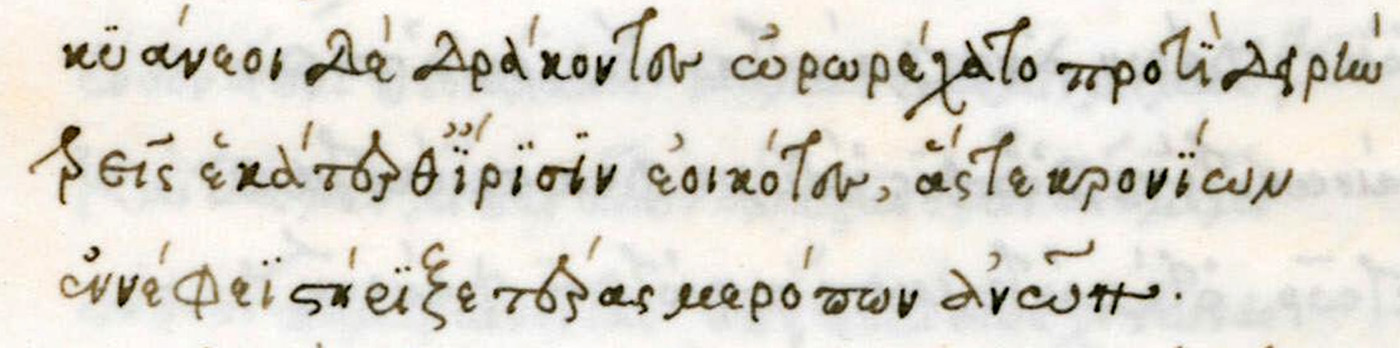 κϋάνεοι δὲ δράκοντες ὀρωρέχατο προτῒ δειρὴν
τρεῖς ἑκάτερθ ἴρϊσϊν ἐοικότες, ἅς τε κρονΐων
ἐν νέφεϊ στήρϊξε τέρας μερόπων ἀν̅ω̅ν̅.